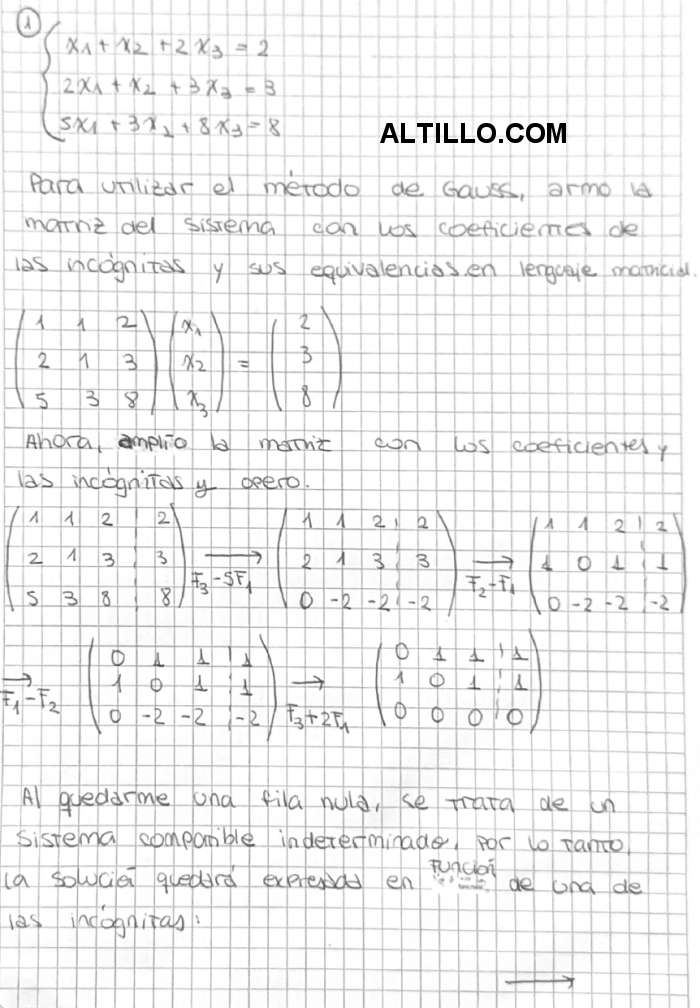 1
x1 + x2 + 2x3 = 2
2x1 + x2 + 3x3 = 3
5x1 + 3x2 + 8x3 = 8
ALTILLO.COM
Para utilizar el método de Gauss, armo la
matriz del sistema con los coeficientes de
las incógnitas y sus equivalencias en lenguaje matricial.
1 1 2 x1 2
2 1 3 x2 = 3
5 3 8 x3 8
Ahora, amplío la matriz con los coeficientes y
las incógnitas y opero.
1 1 2 | 2 1 1 2 | 2 1 1 2 | 2
2 1 3 | 3 → F3-5F1 2 1 3 | 3 → F2-F1 1 0 1 | 1
5 3 8 | 8 0 -2 -2 | -2 0 -2 -2 | -2
0 1 1 | 1 0 1 1 | 1
→ F1-F2 1 0 1 | 1 → F3+2F1 1 0 1 | 1
0 -2 -2 | -2 0 0 0 | 0
Al quedarme una fila nula, se trata de un
sistema compatible indeterminado, por lo tanto,
la solución quedará expresada en función de una de
las incógnitas:
→